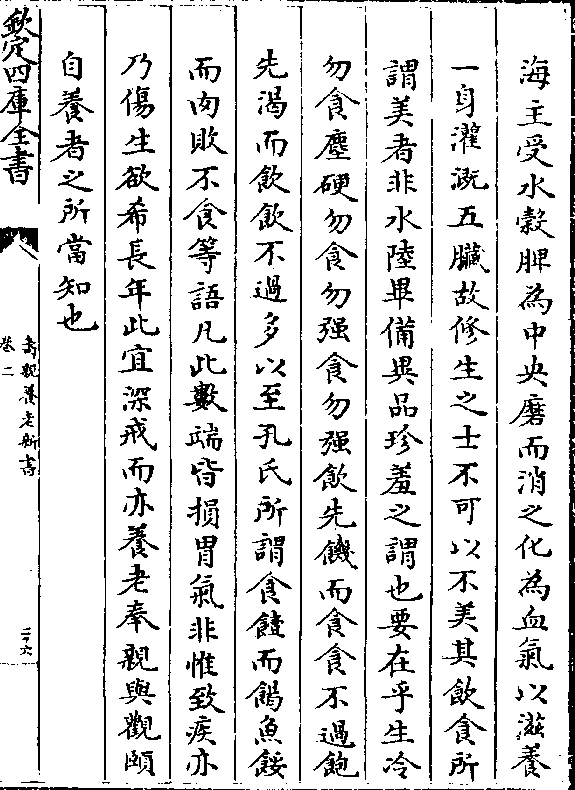 海主受水穀脾為中央磨而消之化為血氣以滋養
一身灌溉五臓故修生之士不可以不美其飲食所
謂美者非水陸畢備異品珍羞之謂也要在乎生冷
勿食麤硬勿食勿强食勿强飲先饑而食食不過飽
先渴而飲飲不過多以至孔氏所謂食饐而餲魚餒
而肉敗不食等語凡此數端皆損胃氣非惟致疾亦
乃傷生欲希長年此宜深戒而亦養老奉親與觀頤
自養者之所當知也
欽定四庫全書
壽親養老新書
卷二
二十六